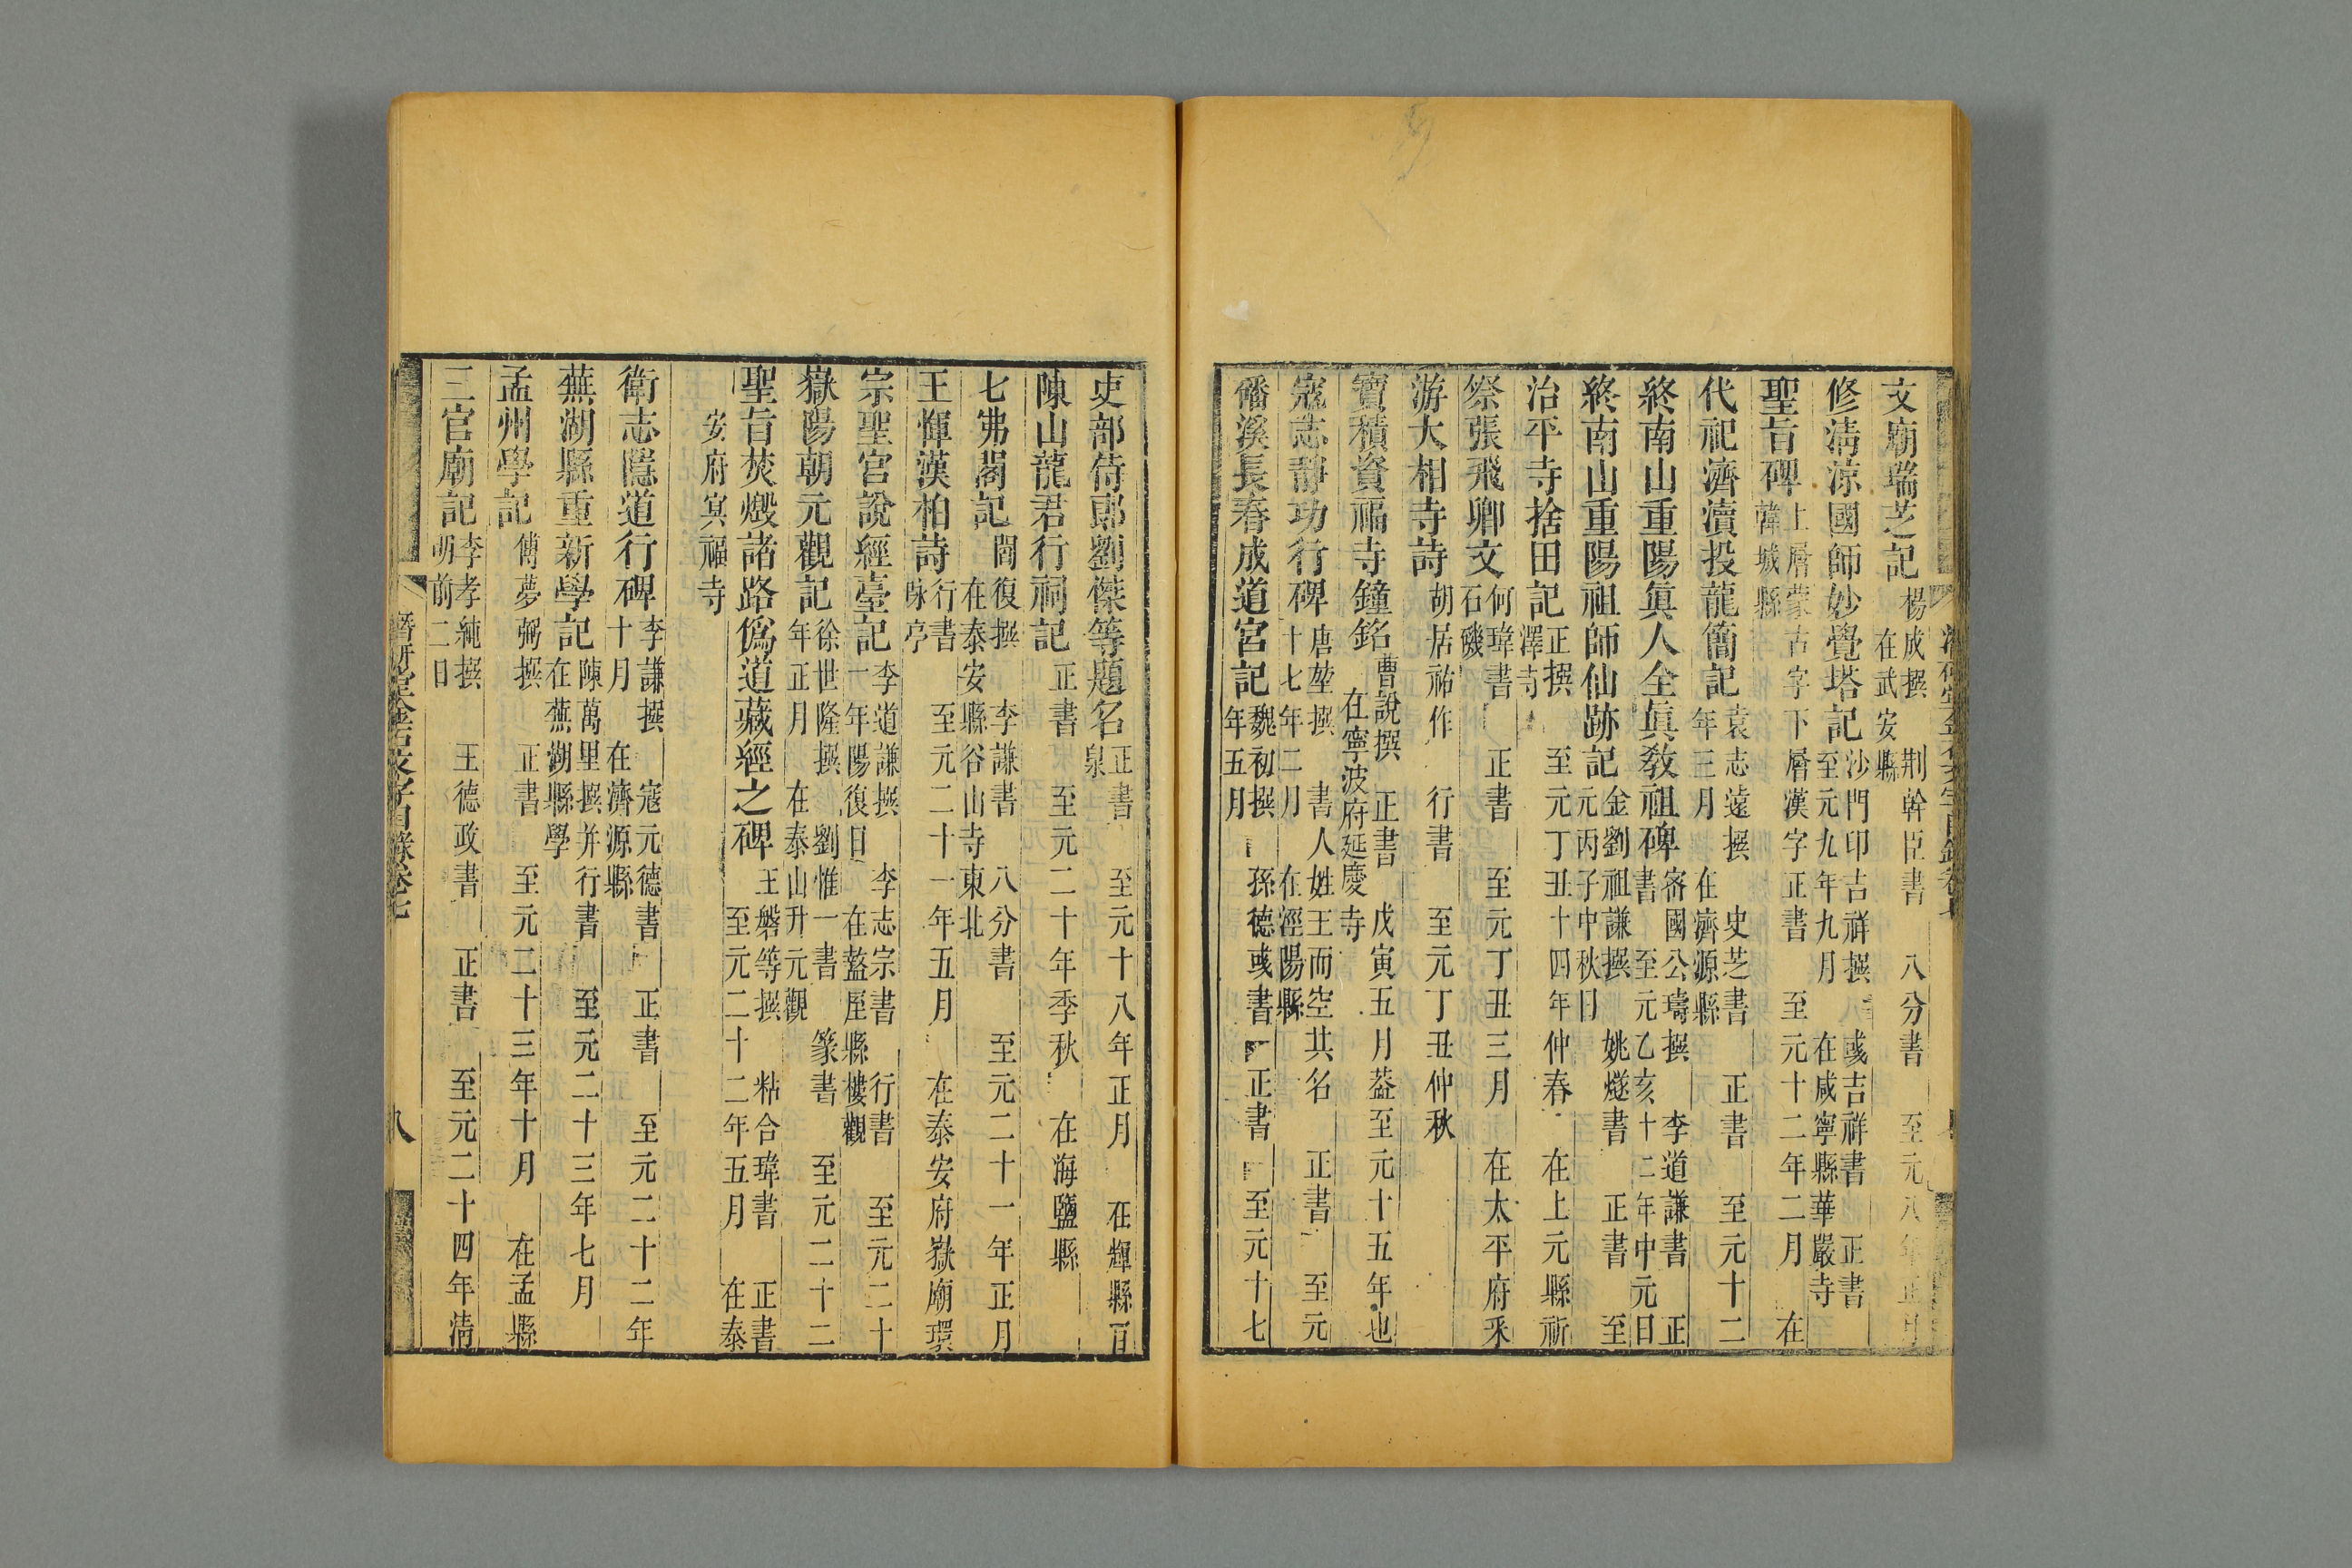 文廟瑞芝記 楊成撰 荆幹臣書 八分書 至元八年正月 在武安縣
修淸涼國師妙覺塔記 沙門印吉祥撰 彧吉祥書 正書 至元九年九月 在咸寧縣華嚴寺
聖旨碑 上層蒙古字下層漢字正書 至元十二年二月 在韓城縣
代祀濟瀆投龍簡記 袁志遠撰 史芝書 正書 至元十二年三月 在濟源縣
終南山重陽眞人全眞敎祖碑 密國公璹撰 李道謙書 正書 至元乙亥十二年中元日
終南山重陽祖師仙跡記 金劉祖謙撰 姚燧書 正書 至元丙子中秋日
治平寺捨田記 正撰 至元丁丑十四年仲春 在上元縣祈澤寺
祭張飛卿文 何瑋書 正書 至元丁丑三月 在太平府采石磯
游大相寺詩 胡居祐作 行書 至元丁丑仲秋
寶積資福寺鐘銘 曹說撰 正書 戊寅五月葢至元十五年也 在寧波府延慶寺
寇志靜功行碑 唐堃撰 書人姓王而空其名 正書 至元十七年二月 在涇陽縣
磻溪長春成道宮記 魏初撰 孫德彧書 正書 至元十七年五月
吏部侍郎劉傑等題名 正書 至元十八年正月 在輝縣百泉
陳山龍君行祠記 正書 至元二十年季秋 在海鹽縣
七弗閣記 閻復撰 李謙書 八分書 至元二十一年正月 在泰安縣谷山寺東北
王惲漢柏詩 行書 至元二十一年五月 在泰安府嶽廟環咏亭
宗聖宮說經臺記 李道謙撰 李志宗書 行書 至元二十一年陽復日 在盩厔縣樓觀
嶽陽朝元觀記 徐世隆撰 劉惟一書 篆書 至元二十二年正月 在泰山升元觀
聖旨焚燬諸路僞道藏經之碑 王磐等撰 粘合瑋書 正書 至元二十二年五月 在泰
安府冥福寺
衛志隱道行碑 李謙撰 寇元德書 正書 至元二十二年十月 在濟源縣
蕪湖縣重新學記 陳萬里撰并行書 至元二十三年七月 在蕪湖縣學
孟州學記 傅夢弼撰 正書 至元二十三年十月 在孟縣
三官廟記 李孝純撰 王德政書 正書 至元二十四年淸明前二日
潛研堂金石文字目錄卷七 八